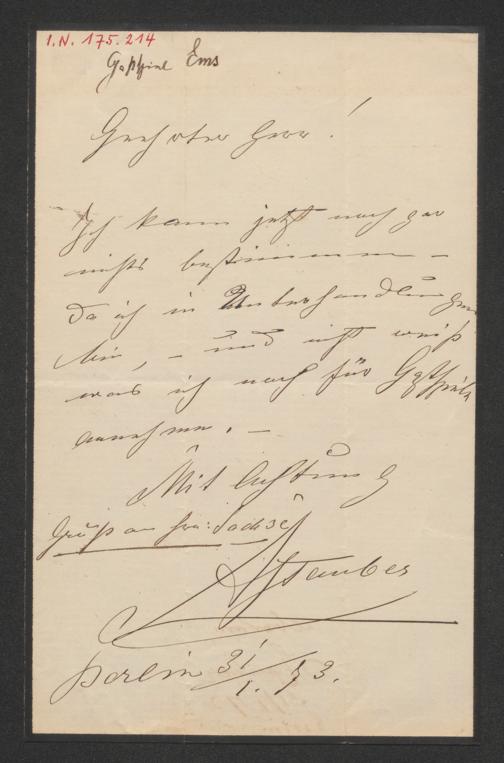 I.N. 175.214
Gastspiel Ems
Geehrter Herr!
Ich kann jetzt noch gar
nichts bestimmen –
da ich in Unterhandlungen
bin, – und nicht weiß
was ich noch für Gastspiele
annehmen. –
Mit Achtung
Gruß an Frau:
Berlin 31/1. 73.